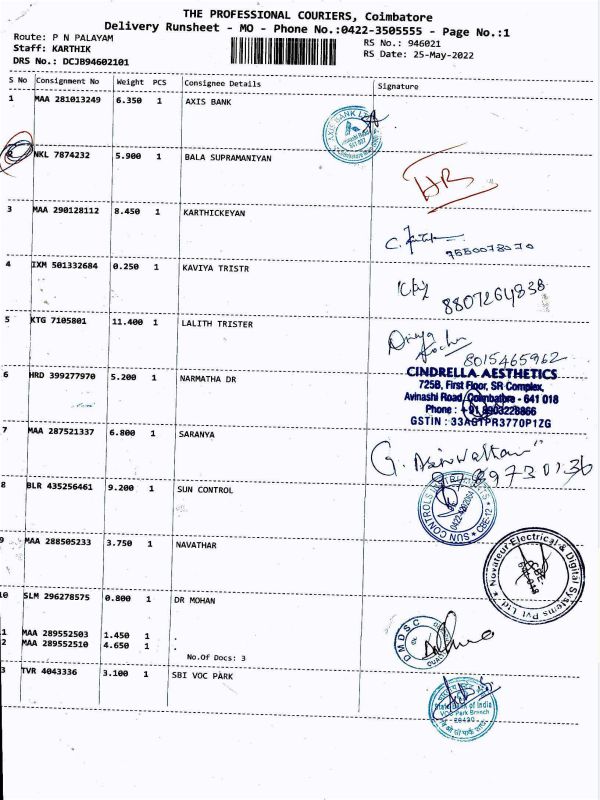 THE PROFESSIONAL COURIERS, Coimbatore
Delivery Runsheet - MO - Phone No.:0422-3505555 - Page No.:1
Route: P N PALAYAM
RS No.: 946021
Staff: KARTHIK
RS Date: 25-May-2022
DRS No.: DCJB94602101
S No Consignment No Weight PCS Consignee Details Signature
1 MAA 281013249 6.350 1 AXIS BANK
AXIS BANK
NKL 7874232 5.900 1 BALA SUPRAMANIYAN
HB
3 MAA 290128112 8.450 1 KARTHICKEYAN
C.
4 IXM 501332684 0.250 1 KAVIYA TRISTR
8807264838
5 KTG 7105801 11.400 1 LALITH TRISTER
Divya
8015465962
6 HRD 399277970 5.200 1 NARMATHA DR
CINDRELLA AESTHETICS
725B, First Floor, SR Complex,
Avinashi Road, Coimbatore - 641 018
Phone : +91 8903228866
GSTIN : 33AGTPR3770P1ZG
7 MAA 287521337 6.800 1 SARANYA
G.
8 BLR 435256461 9.200 1 SUN CONTROL
SUN CONTROLS
CBE-12
9 MAA 288505233 3.750 1 NAVATHAR
Novateur Electrical & Digital Systems Pvt Ltd
CBE
10 SLM 296278575 0.800 1 DR MOHAN
DMDSC
11 MAA 289552503 1.450 1 .
12 MAA 289552510 4.650 1 .
No.Of Docs: 3
13 TVR 4043336 3.100 1 SBI VOC PARK
State Bank of India
VOC Park Branch